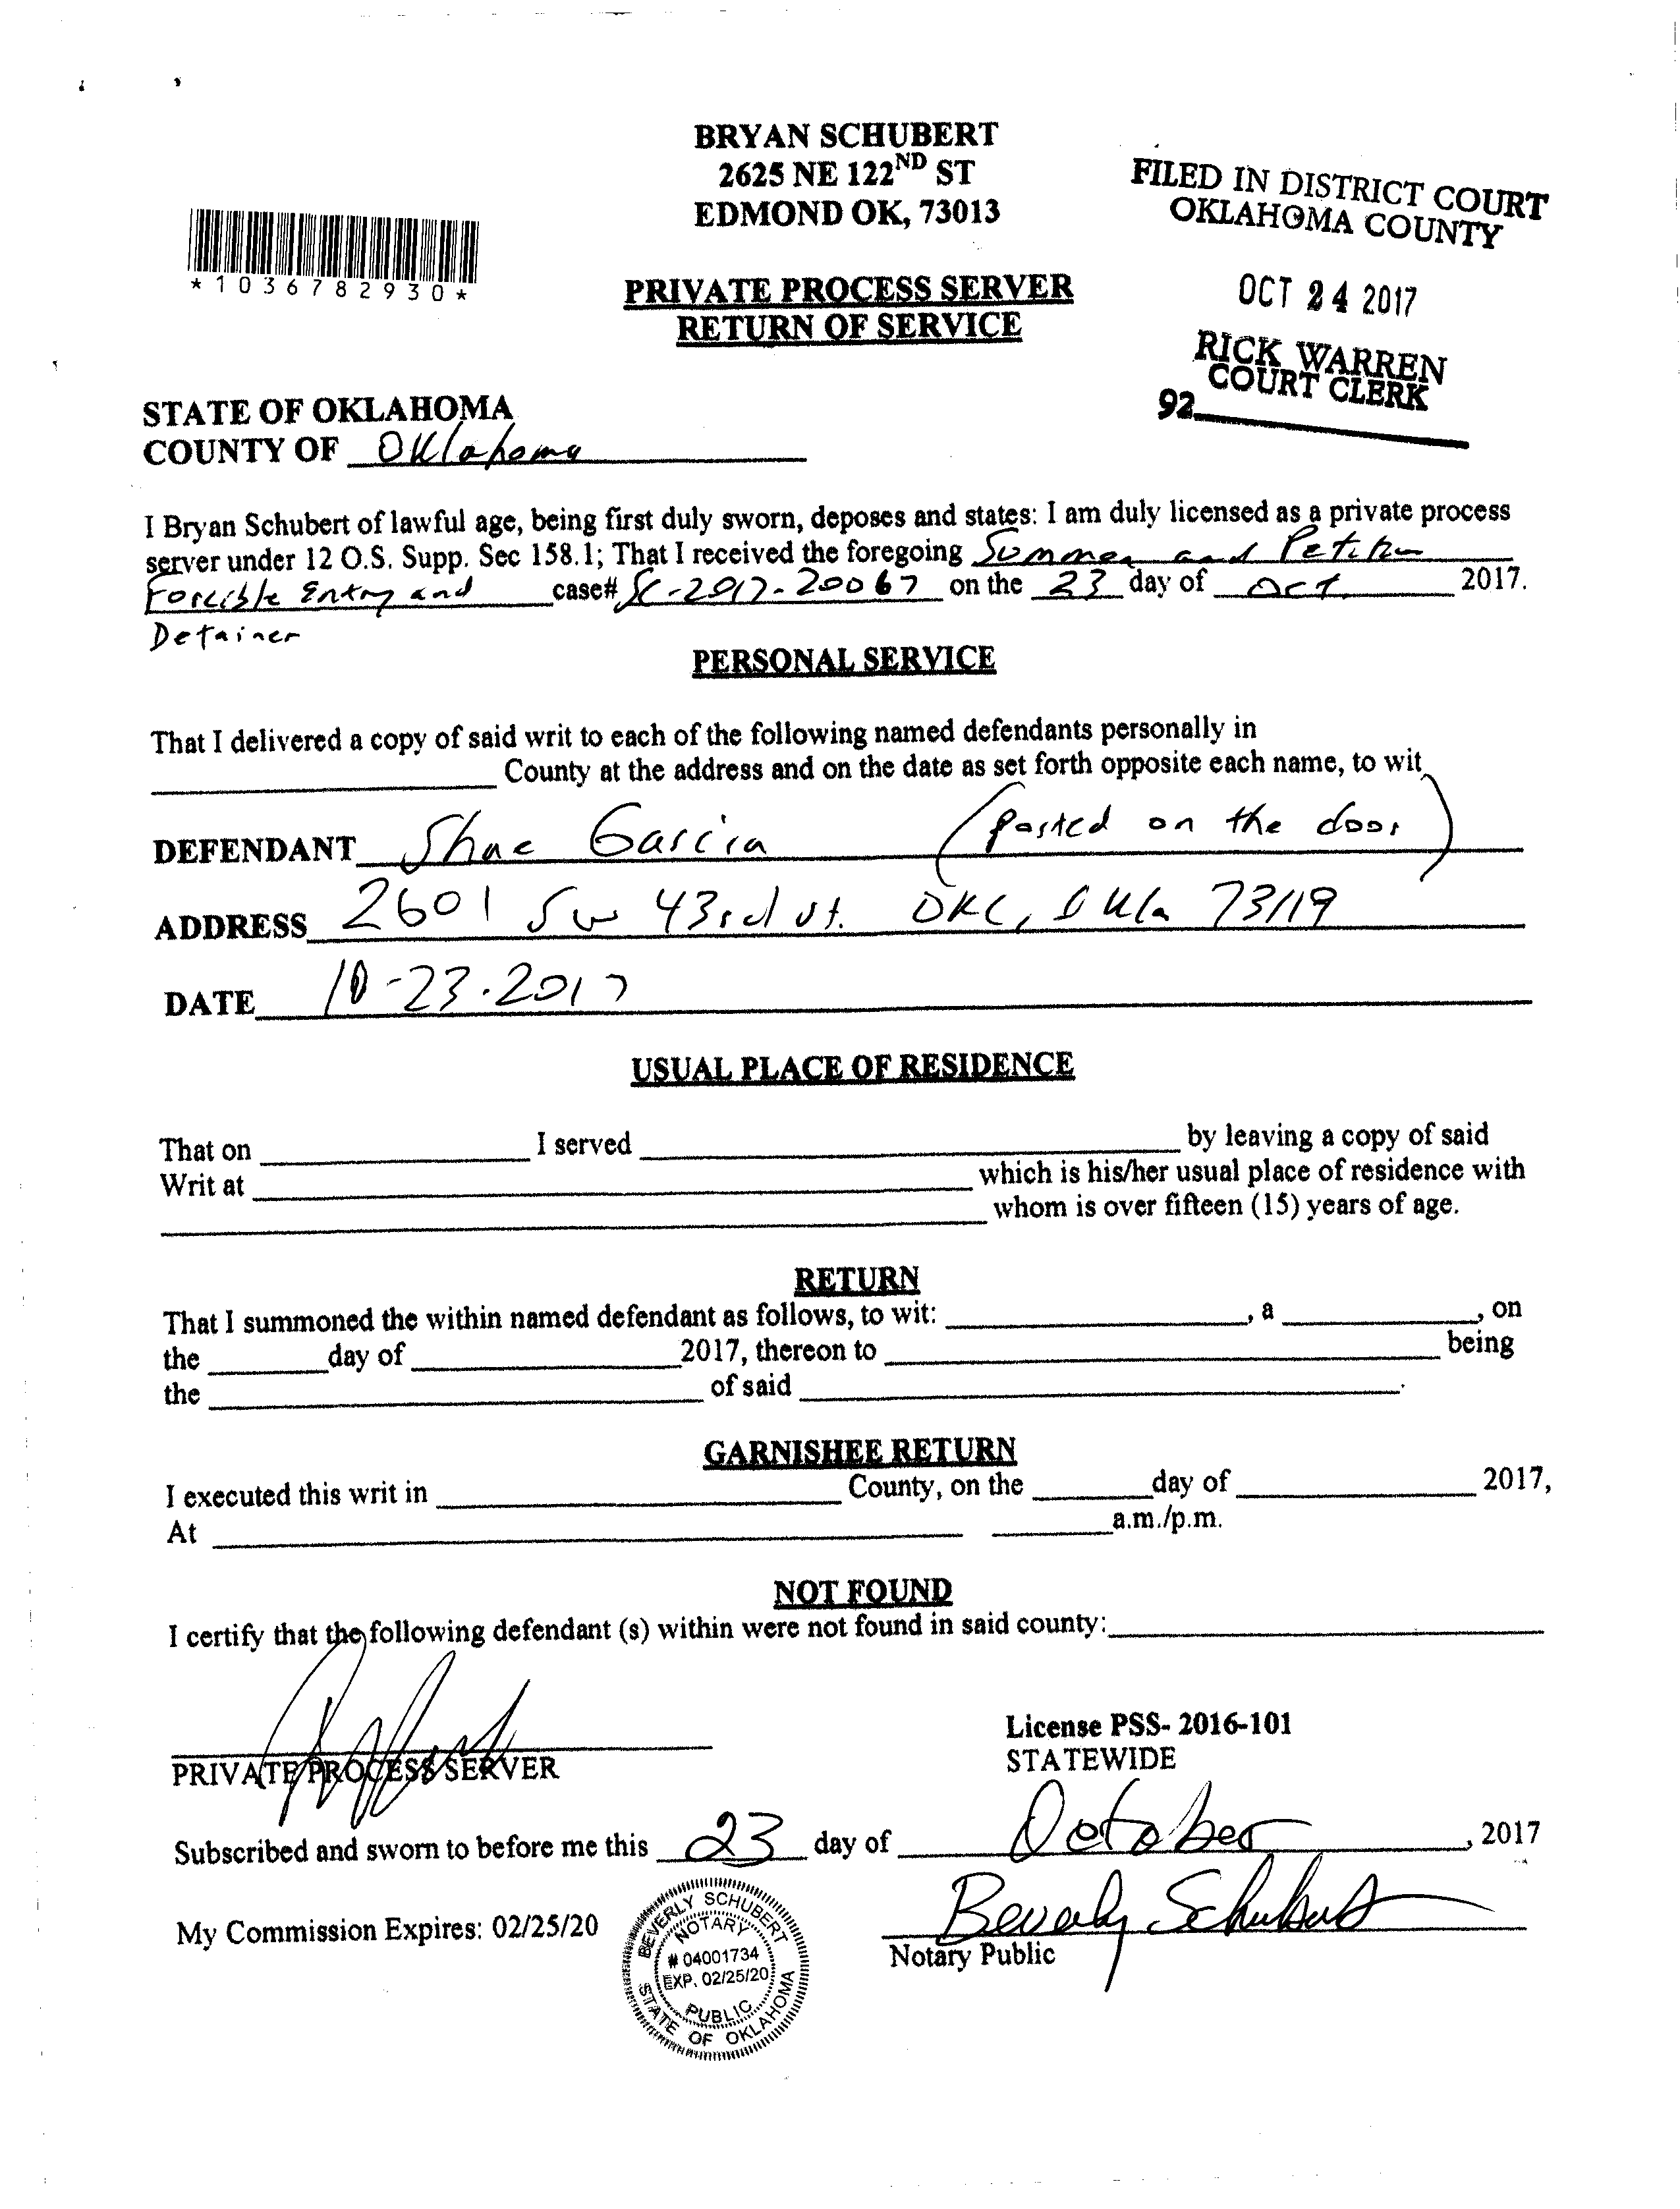 BRYAN SCHUBERT
2625 NE 122ND ST
EDMOND OK, 73013
FILED IN DISTRICT COURT
OKLAHOMA COUNTY
OCT 24 2017
RICK WARREN
COURT CLERK
92
*1036782930*
PRIVATE PROCESS SERVER
RETURN OF SERVICE
STATE OF OKLAHOMA
COUNTY OF Oklahoma
I Bryan Schubert of lawful age, being first duly sworn, deposes and states: I am duly licensed as a private process
server under 12 O.S. Supp. Sec 158.1; That I received the foregoing Summons and Petition
Forcible Entry and case# SC-2017-20067 on the 23 day of Oct. 2017.
Detainer
PERSONAL SERVICE
That I delivered a copy of said writ to each of the following named defendants personally in
County at the address and on the date as set forth opposite each name, to wit
DEFENDANT Shae Garcia (posted on the door)
ADDRESS 2601 SW 43rd st. OKC, Okla 73119
DATE 10-23-2017
USUAL PLACE OF RESIDENCE
That on I served by leaving a copy of said
Writ at which is his/her usual place of residence with
whom is over fifteen (15) years of age.
RETURN
That I summoned the within named defendant as follows, to wit: , a , on
the day of 2017, thereon to being
the of said .
GARNISHEE RETURN
I executed this writ in County, on the day of 2017,
At a.m./p.m.
NOT FOUND
I certify that the following defendant (s) within were not found in said county:
PRIVATE PROCESS SERVER
License PSS- 2016-101
STATEWIDE
Subscribed and sworn to before me this 23 day of October, 2017
Beverly Schubert
My Commission Expires: 02/25/20
Notary Public
BEVERLY SCHUBERT
NOTARY
# 04001734
EXP. 02/25/20
PUBLIC
STATE OF OKLAHOMA